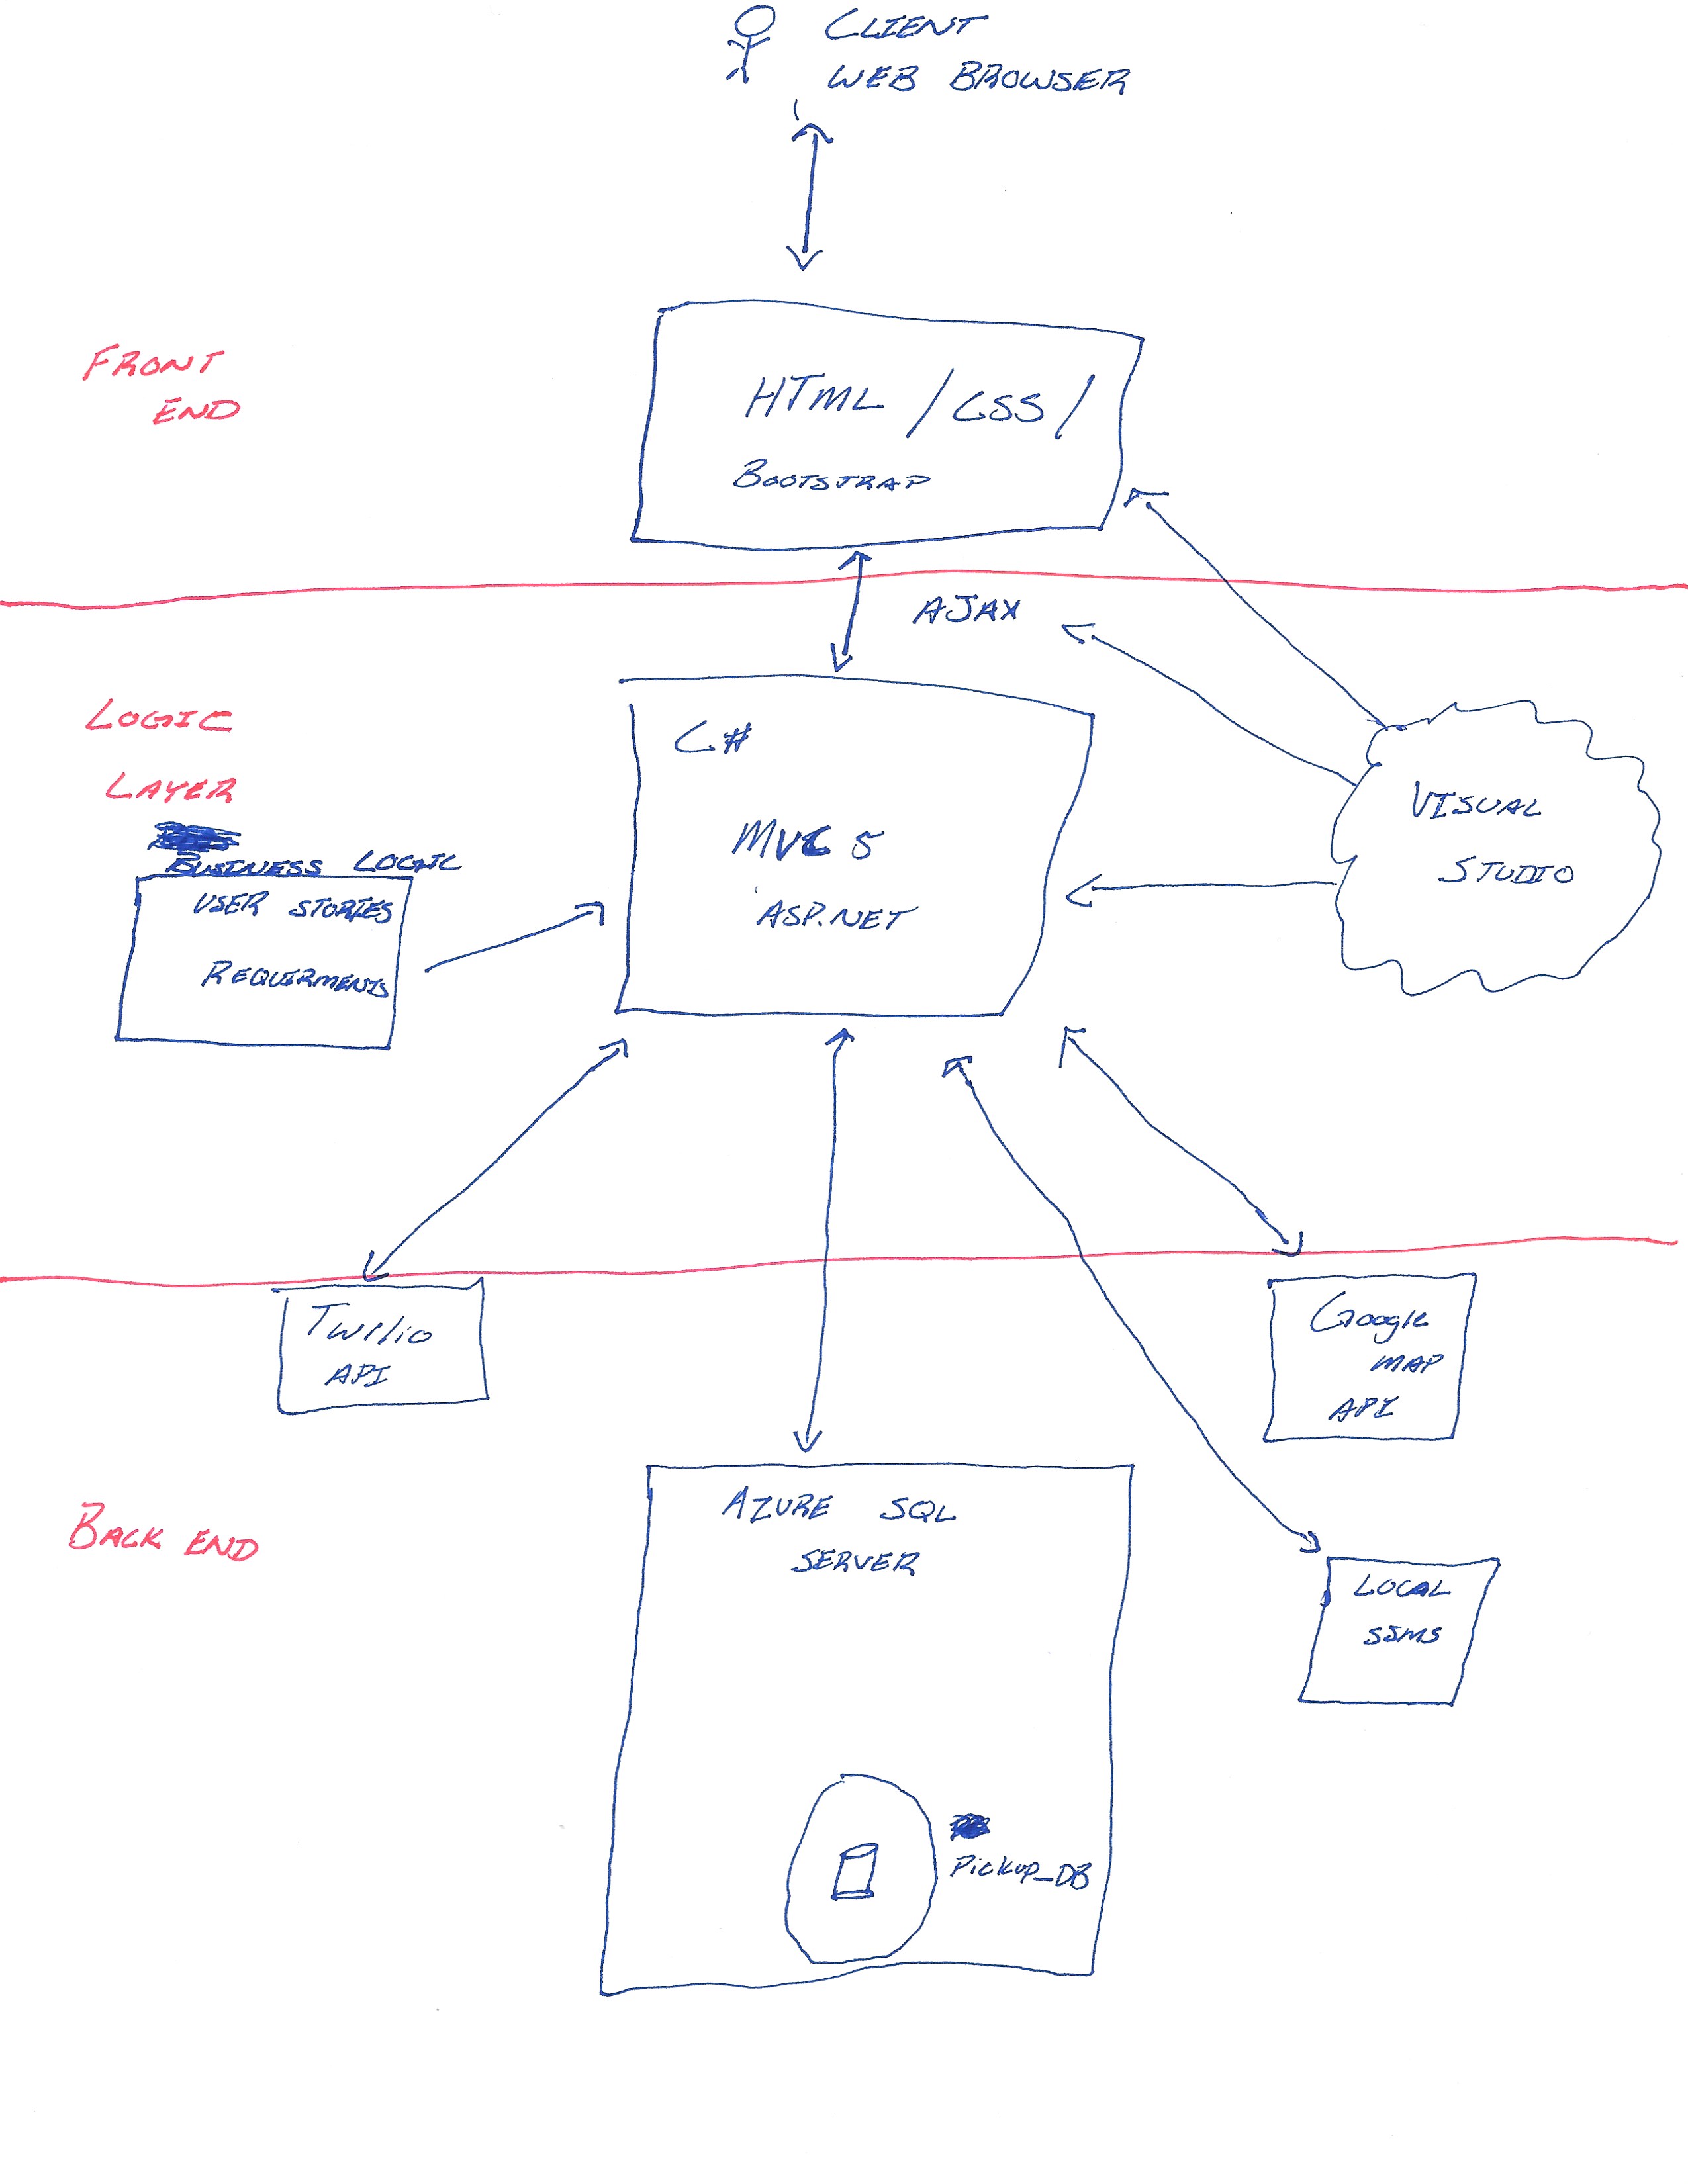 CLIENT
WEB BROWSER
FRONT
END
HTML / CSS /
BOOTSTRAP
AJAX
LOGIC
LAYER
BUSINESS LOGIC
USER STORIES
REQUIRMENTS
C#
MVC 5
ASP.NET
VISUAL
STUDIO
Twilio
API
Google
MAP
API
BACK END
AZURE SQL
SERVER
LOCAL
SSMS
Pickup_DB